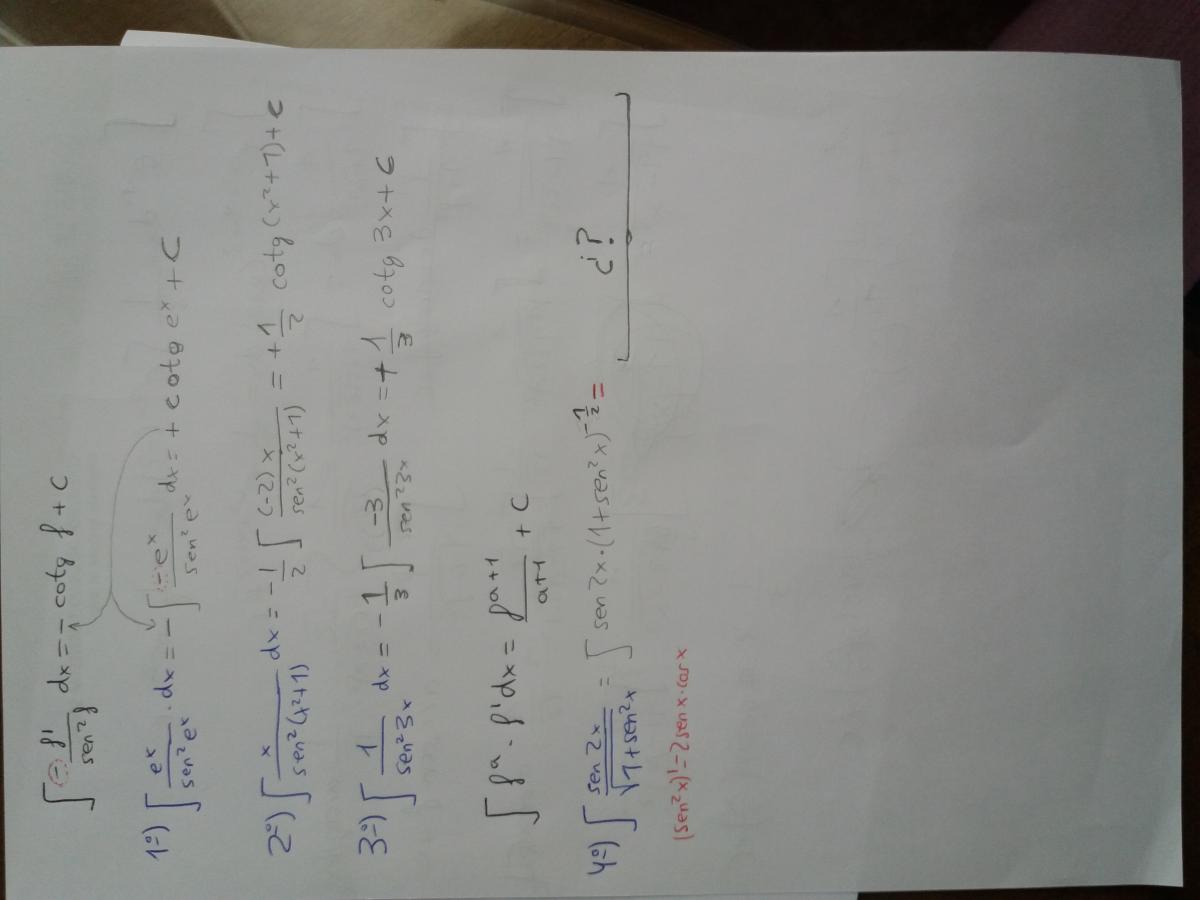 ∫ (-) f'/sen²f dx = - cotg f + C
1º) ∫ eˣ/sen²eˣ · dx = - ∫ -eˣ/sen²eˣ dx = + cotg eˣ + C
2º) ∫ x/sen²(x²+1) dx = -1/2 ∫ (-2)x/sen²(x²+1) = +1/2 cotg(x²+1)+c
3º) ∫ 1/sen²3x dx = -1/3 ∫ -3/sen²3x dx = +1/3 cotg 3x + C
∫ fᵃ · f'dx = fᵃ⁺¹/a+1 + C
4º) ∫ sen2x/√1+sen²x = ∫ sen2x·(1+sen²x)^-1/2 = ¿?
(sen²x)'=2senx·cosx